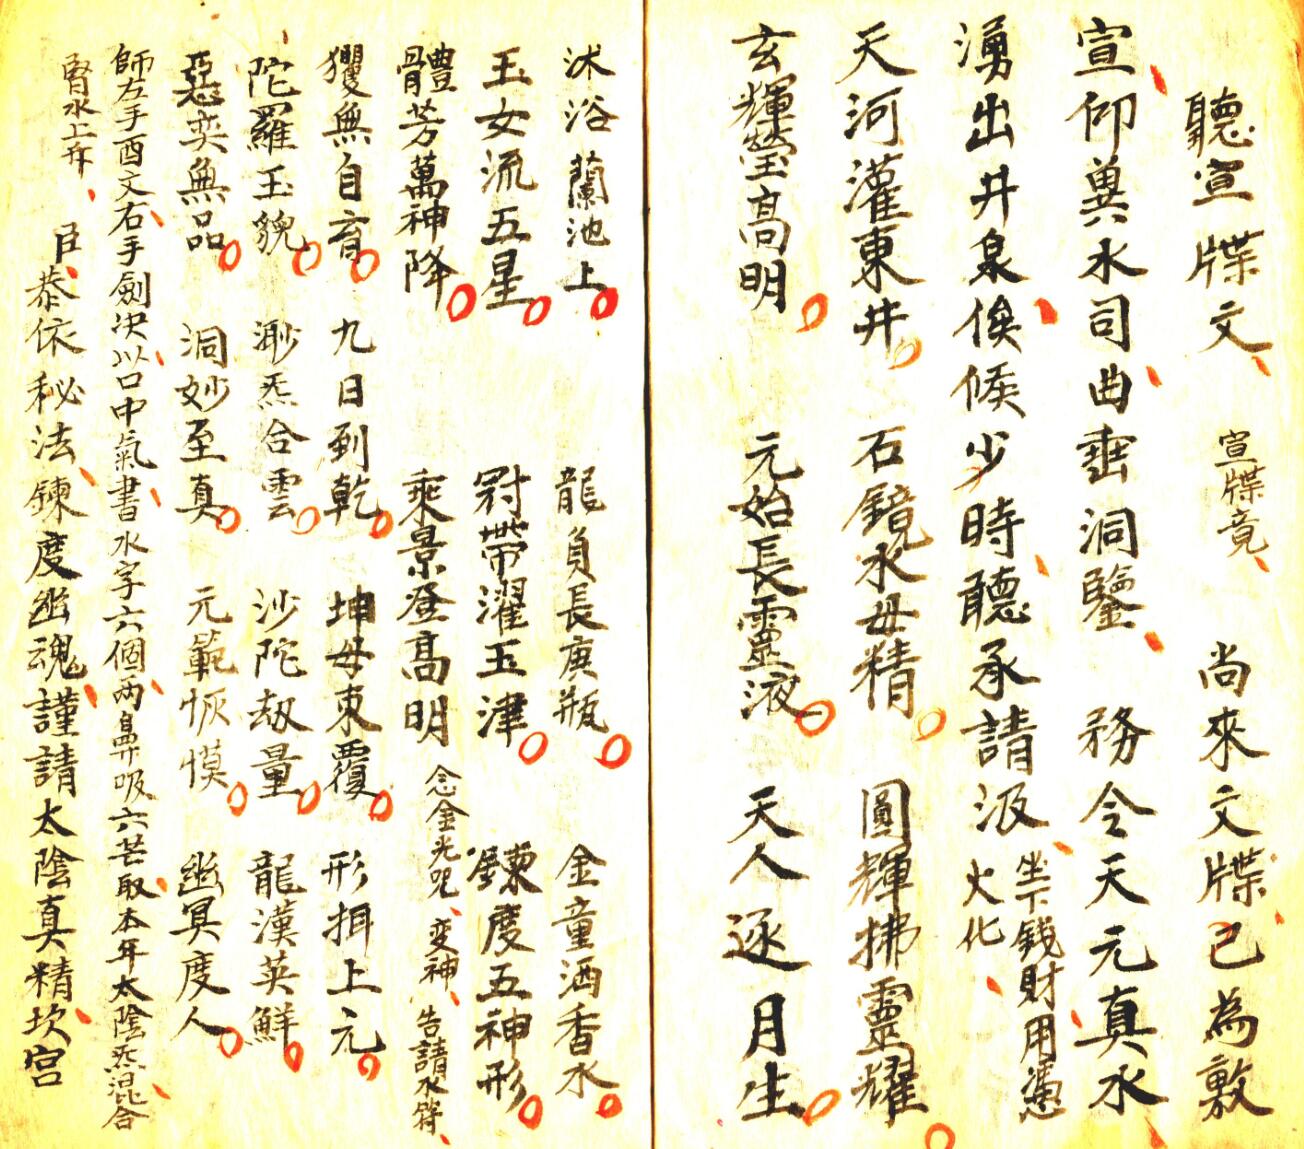 聽宣牒文 宣牒竟 尚來文牒已為敷
宣仰兾水司曲垂洞鑒 務令天元真水
湧出井泉俟候少時聽承請汲 坐下錢財用憑火化
天河灌東井 石鏡水母精 圓輝拂靈耀
玄輝瑩高明 元始長靈液 天人逐月生
沐浴蘭池上 龍負長庚瓶 金童洒香水
玉女流五星 冠帶濯玉津 鍊度五神形
體芳萬神降 乘景登高明 念金光咒 变神 告請水符
玃無自育 九日到乾 坤母東覆 形摄上元
陀羅玉貌 渺炁合雲 沙陀劫量 龍漢英鮮
惡奕無品 洞妙至真 元範恢漠 幽冥度人
師左手酉文右手劍決以口中氣書水字六個兩鼻吸六芒取本年太陰炁混合
腎水上升 臣
恭依秘法鍊度幽魂謹請太陰真精坎宮